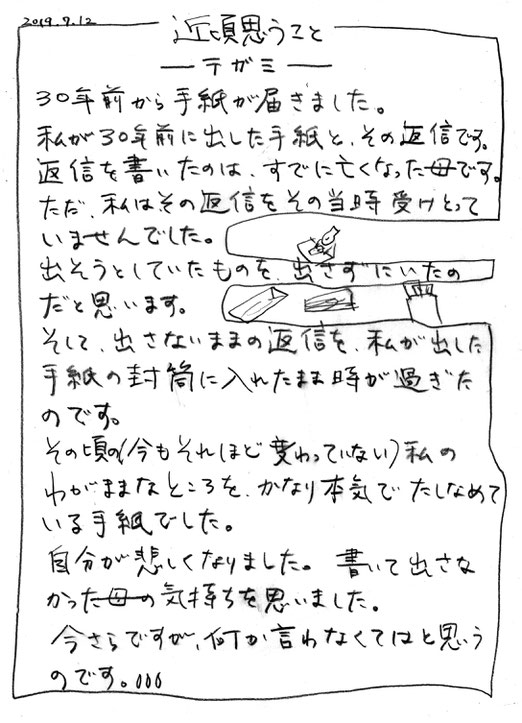 2019.9.12
近頃思うこと
―テガミ―
30年前から手紙が届きました。
私が30年前に出した手紙と、その返信です。
返信を書いたのは、すでに亡くなった母です。
ただ、私はその返信をその当時受けとって
いませんでした。
出そうとしていたものを、出さずにいたの
だと思います。
そして、出さないままの返信を、私が出した
手紙の封筒に入れたまま時が過ぎた
のです。
その頃の(今もそれほど変わっていない)私の
わがままなところを、かなり本気でたしなめて
いる手紙でした。
自分が悲しくなりました。書いて出さな
かった母の気持ちを思いました。
今さらですが、何か言わなくてはと思う
のです。。。。